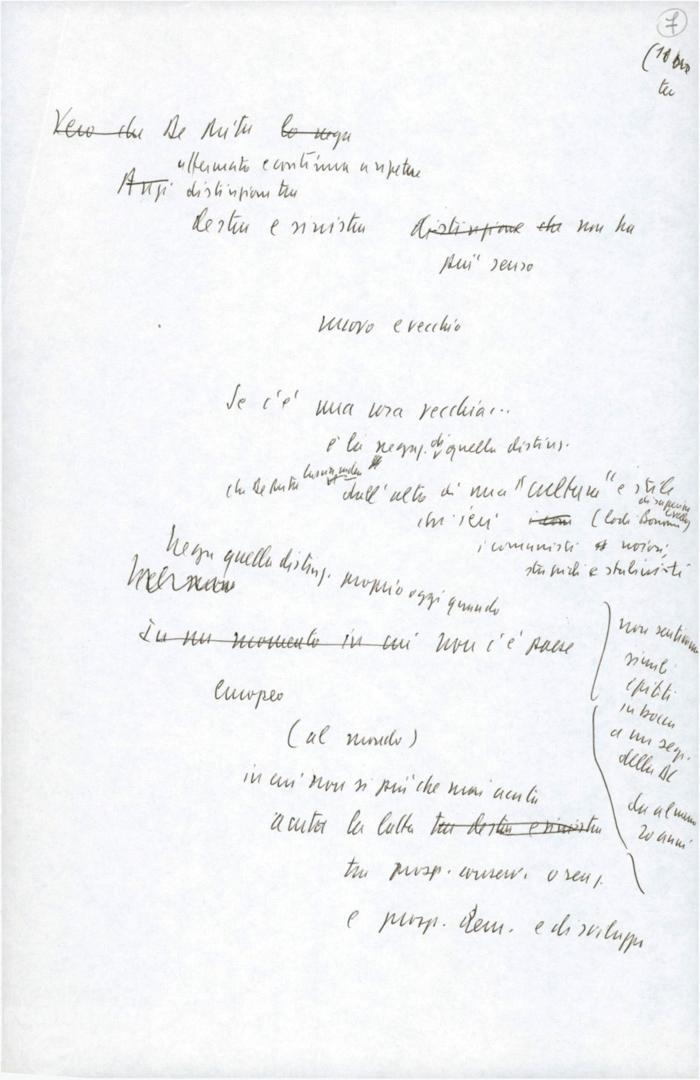 7
Vero che De Mita lo nega
affermato e continua a ripetere
Anzi distinzione tra
destra e sinistra distinzione che non ha
più senso
nuovo e vecchio
Se c'è una cosa vecchia...
è la negaz. di quella disting.
che De Mita
dall'alto di una "cultura" e stile
di superiore
chi ieri icom (lodi Bonomi)
i comunisti noiosi,
stupidi e stalinisti
Nega quella disting. proprio oggi quando
In un momento in cui non c'è paese
Europeo
(al mondo)
in cui non si più che mai acuta
acuta la lotta tra destra e sinistra
tra prosp. conserv. o reaz.
e prosp. dem. e di sviluppo
non sentivamo
simili
epiteti
in bocca
a un segr.
della DC
da almeno
20 anni